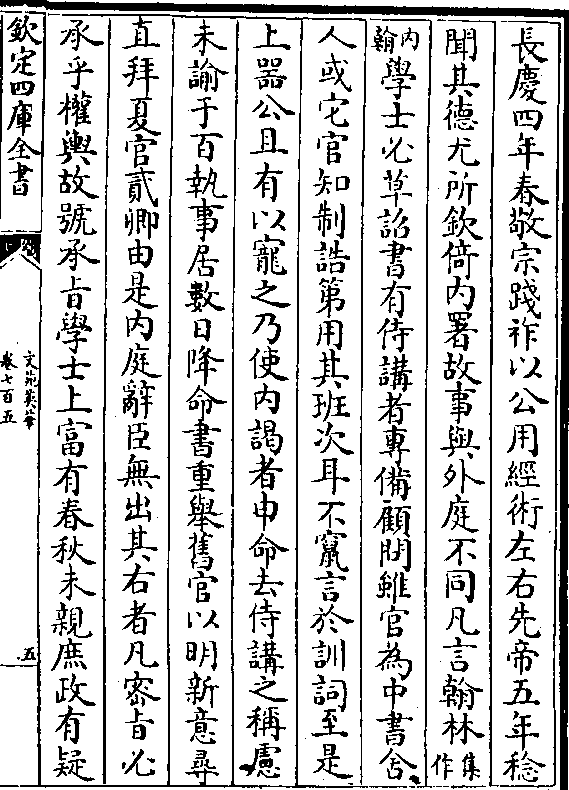 長慶四年春敬宗踐祚以公用經術左右先帝五年稔
聞其德尤所欽倚内署故事與外庭不同凡言翰林集作
内翰學士必草詔書有侍講者專備顧問雖官為中書舍
人或它官知制誥第用其班次耳不竄言於訓詞至是
上器公且有以寵之乃使内謁者申命去侍講之稱慮
未諭于百執事居數日降命書重舉舊官以明新意尋
直拜夏官貳卿由是内庭辭臣無出其右者凡密旨必
承乎權輿故號承旨學士上富有春秋未親庶政有疑
欽定四庫全書
文苑英華
卷七百五
五